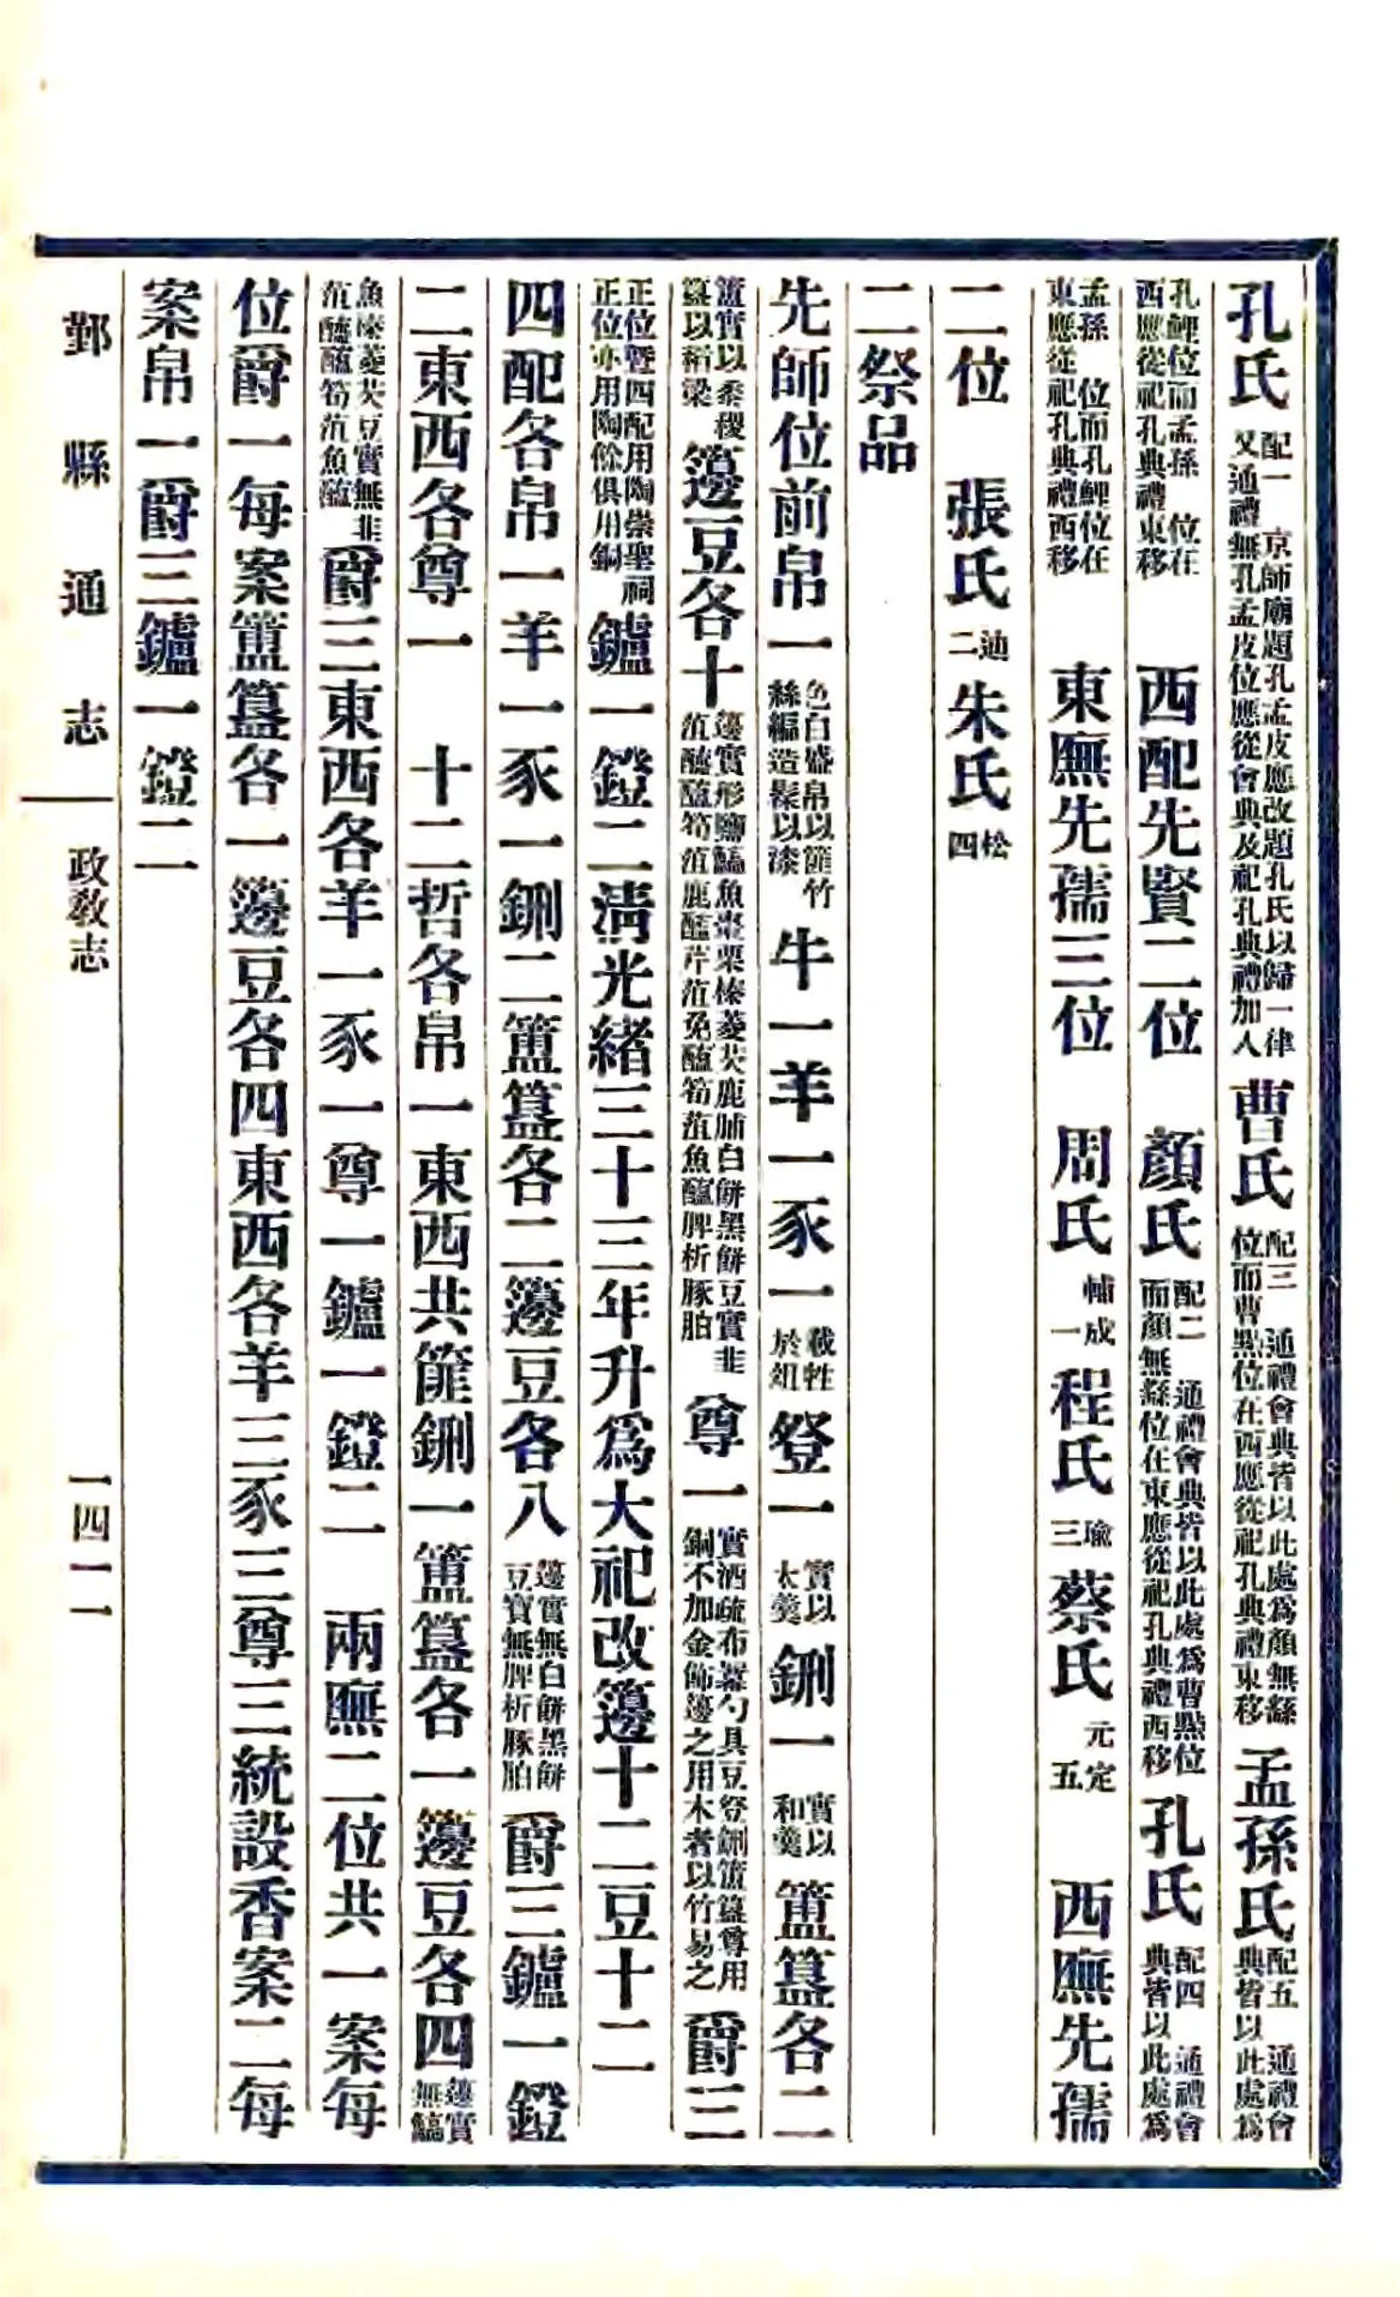 孔氏配一　京師廟題孔孟皮應改題孔氏以歸一律又通禮無孔孟皮位應從會典及祀孔典禮加入曹氏配三　通禮會典皆以此處爲顏無繇位而曹點位在西應從祀孔典禮東移孟孫氏配五　通禮會典皆以此處爲
孔鯉位而孟孫　位在西應從祀孔典禮東移　西配先賢二位　顏氏配二　通禮會典皆以此處爲曹點位而顏無繇位在東應從祀孔典禮西移孔氏配四　通禮會典皆以此處爲
孟孫　位而孔鯉位在東應從祀孔典禮西移　東廡先儒三位　周氏輔成一程氏瑜三蔡氏元定五　西廡先儒
二位　張氏迪二朱氏松四
二祭品
先師位前帛一色白盛帛以篚竹絲編造髹以漆牛一羊一豕一載牲於俎登一實以太羹鉶一實以和羹簠簋各二
簠實以黍稷簋以稻粱籩豆各十籩實形鹽鱐魚棗栗榛菱芡鹿脯白餠黑餠豆實韭菹醓醢筍菹鹿醢芹菹兔醢筍菹魚醢脾析豚胉尊一實酒疏布冪勺具豆登鉶簠簋尊用銅不加金飾籩之用木者以竹易之爵三
正位曁四配用陶崇聖祠正位亦用陶餘俱用銅鑪一鐙二淸光緒三十三年升爲大祀改籩十二豆十二
四配各帛一羊一豕一鉶二簠簋各二籩豆各八籩實無白餠黑餠豆實無脾析豚胉爵三鑪一鐙
二東西各尊一　十二哲各帛一東西共篚鉶一簠簋各一籩豆各四籩實無鱐
魚榛菱芡豆實無韭菹醓醢筍菹魚醢爵三東西各羊一豕一尊一鑪一鐙二　兩廡二位共一案每
位爵一每案簠簋各一籩豆各四東西各羊三豕三尊三統設香案二每
案帛一爵三鑪一鐙二
鄞縣通志
政敎志
一四一一